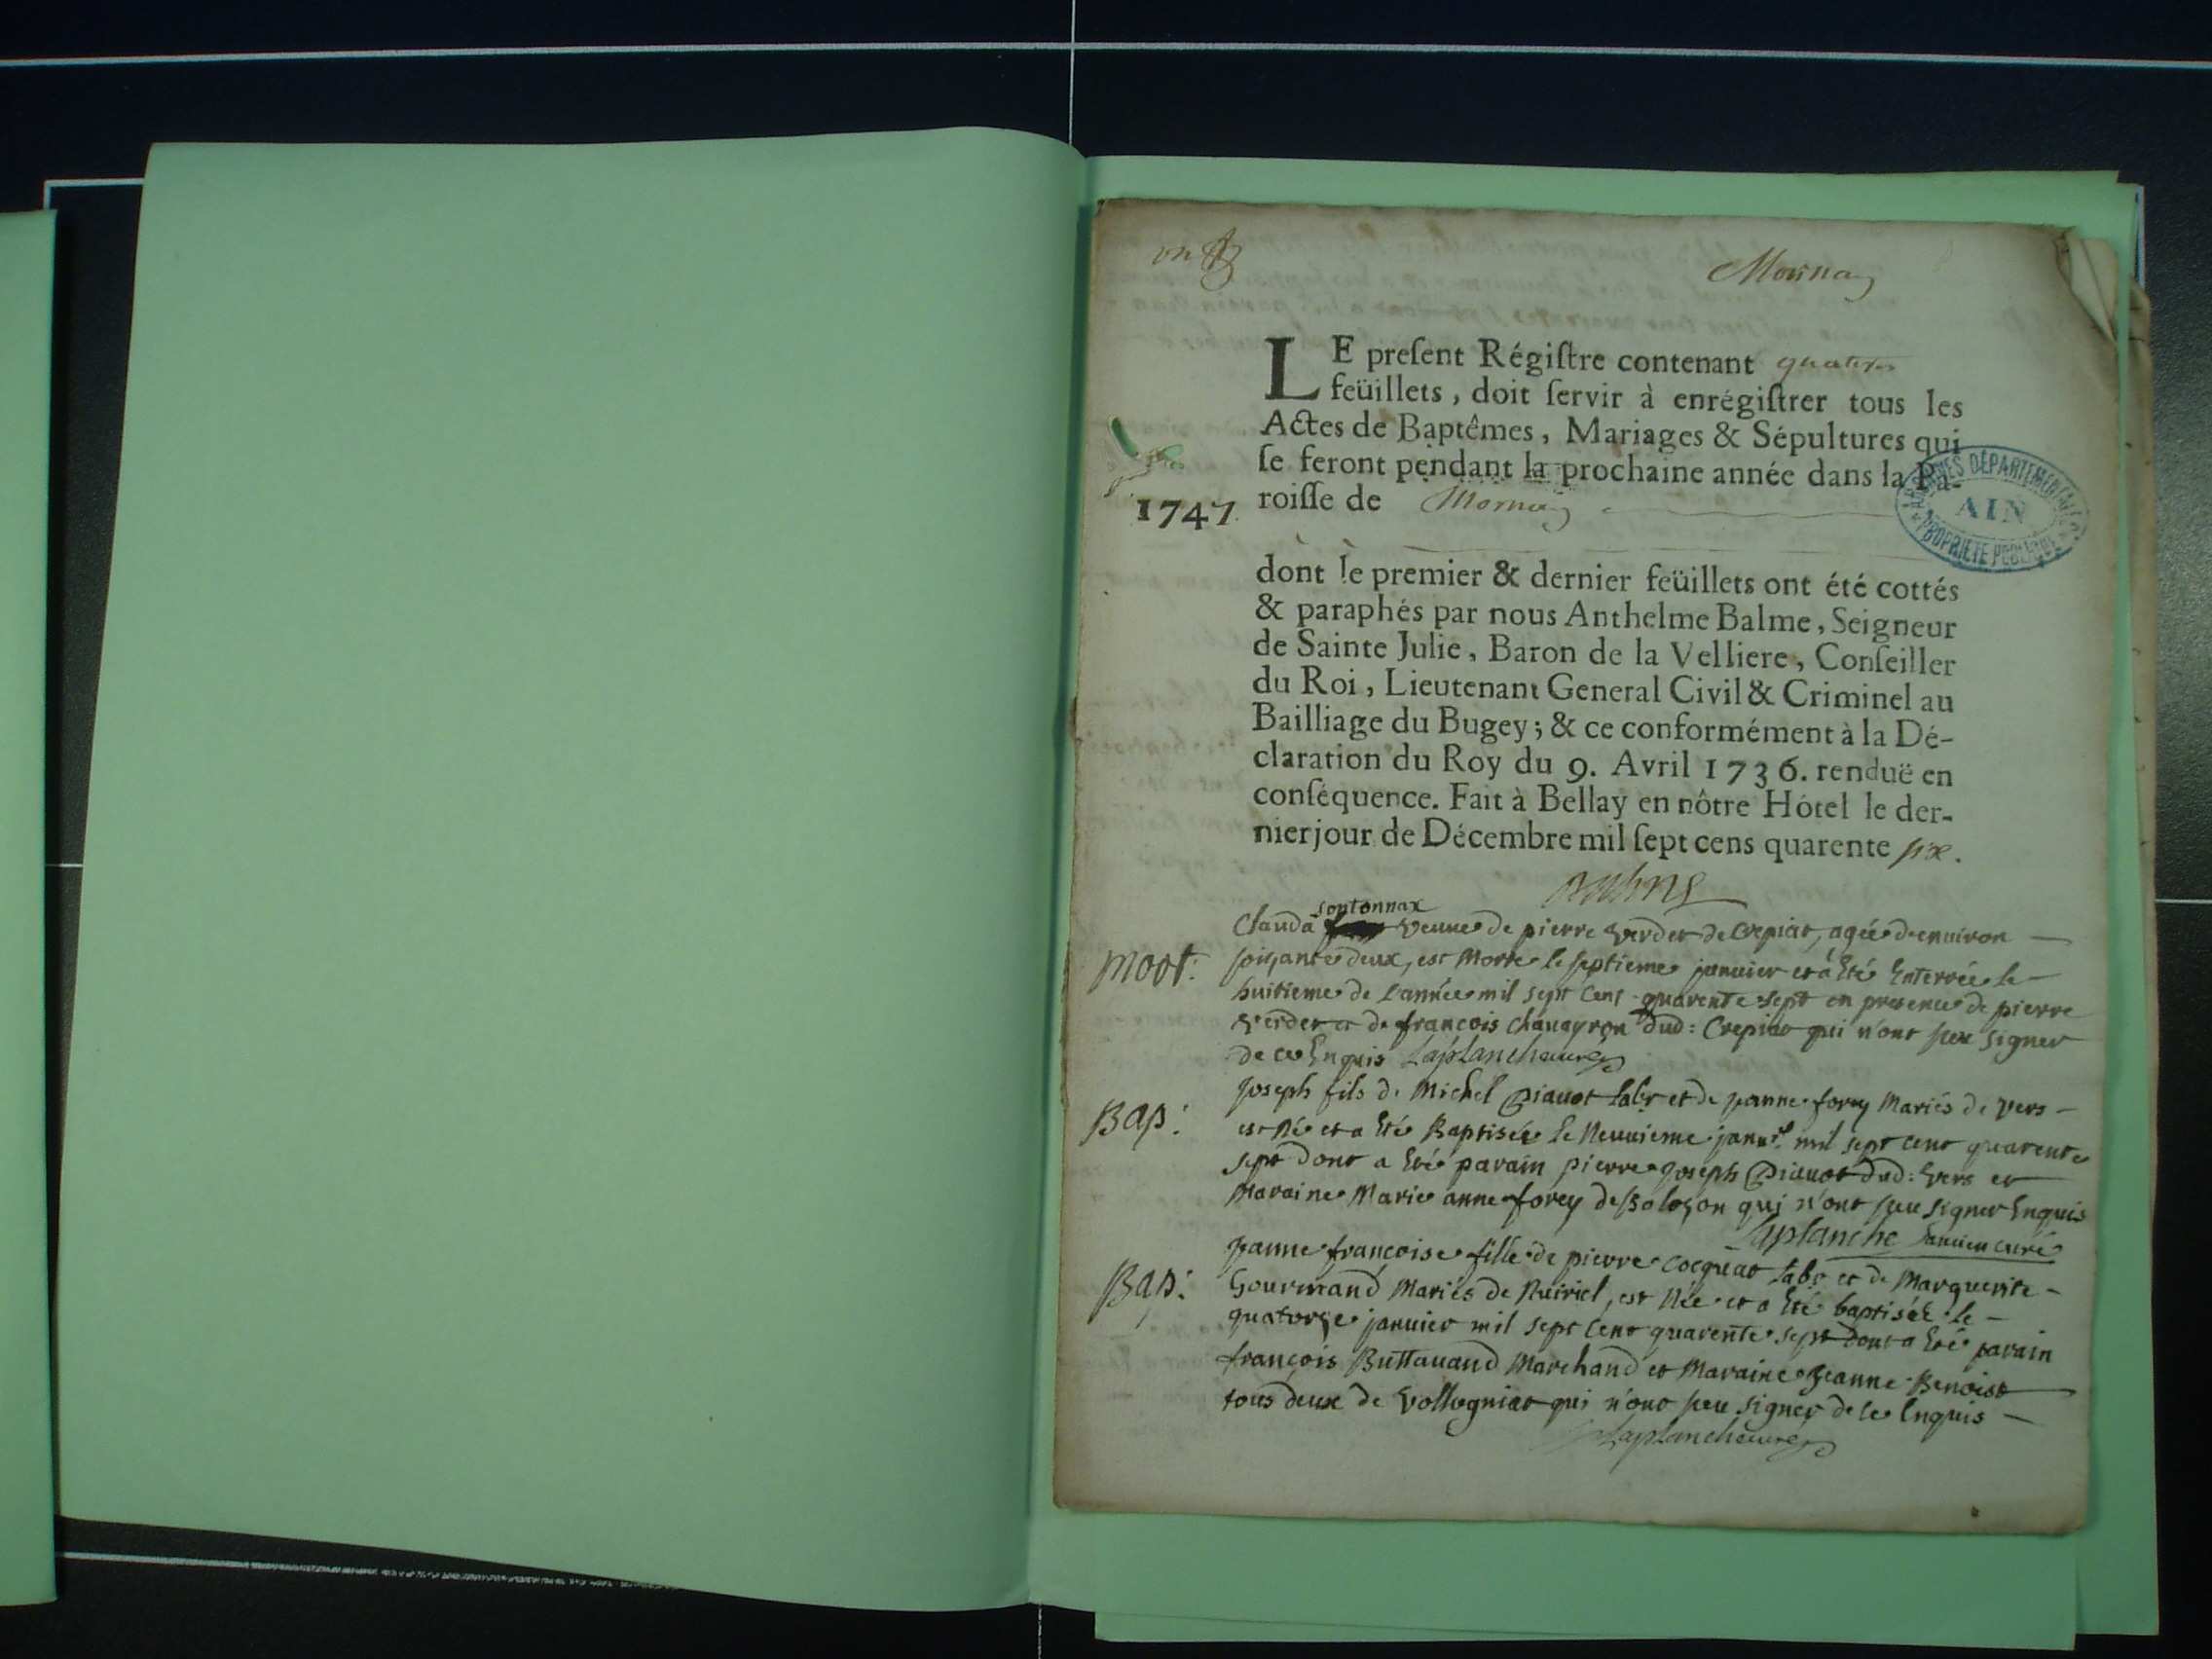 un
Mornay
LE preſent Régiſtre contenant quatre
feüillets, doit ſervir à enrégiſtrer tous les
Actes de Baptêmes, Mariages & Sépultures qui
ſe feront pendant la prochaine année dans la Pa-
1747. roiſſe de Mornay
ARCHIVES DÉPARTEMENTALES
AIN
PROPRIÉTÉ PUBLIQUE
dont le premier & dernier feüillets ont été cottés
& paraphés par nous Anthelme Balme, Seigneur
de Sainte Julie, Baron de la Velliere, Conſeiller
du Roi, Lieutenant General Civil & Criminel au
Bailliage du Bugey; & ce conformément à la Dé-
claration du Roy du 9. Avril 1736. renduë en
conſéquence. Fait à Bellay en nôtre Hótel le der-
nier jour de Décembre mil ſept cens quarente six.
sontonnax
Clauda veuve de pierre verdet de crepiat, agée d'environ
mort: soixante deux, est Morte le septieme janvier et à Eté Enterrée le
huitieme de l'année mil sept Cent quarente sept en presence de pierre
verdet et de françois chavayron dud: Crepiat qui n'ont sceu signer
de ce Enquis Laplanche curé
Joseph fils de Michel Piavot labr et de jeanne forey Mariés de vers
Bap: est Né et a Eté Baptisée le Neuvieme janvr mil sept cent quarente
sept dont a Eté parain pierre joseph Piavot dud: vers et
Maraine Marie anne forey de Bolozon qui n'ont sceu signer Enquis
Laplanche ancien curé
jeanne françoise fille de pierre cocquat labr et de Marguerite
Bap: Gourmand Mariés de Nuiriel, est Née et a Eté baptisée le
quatorze janvier mil sept Cent quarente sept dont a Eté parain
françois Buttavand Marchand et Maraine Jeanne Benoist
tous deux de Vollogniat qui n'ont sceu signer de ce Enquis
Laplanche curé